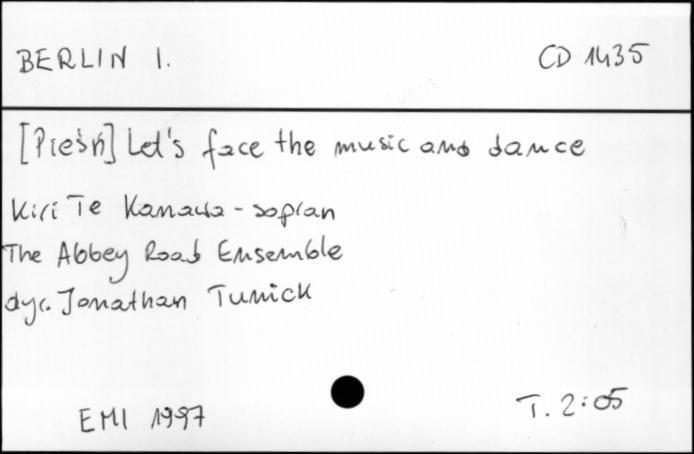 BERLIN I.
CD 1435
[Pieśń] Let's face the music and dance
Kiri Te Kanawa - sopran
The Abbey Road Ensemble
dyr. Jonathan Tunick
EMI 1997
T. 2:05